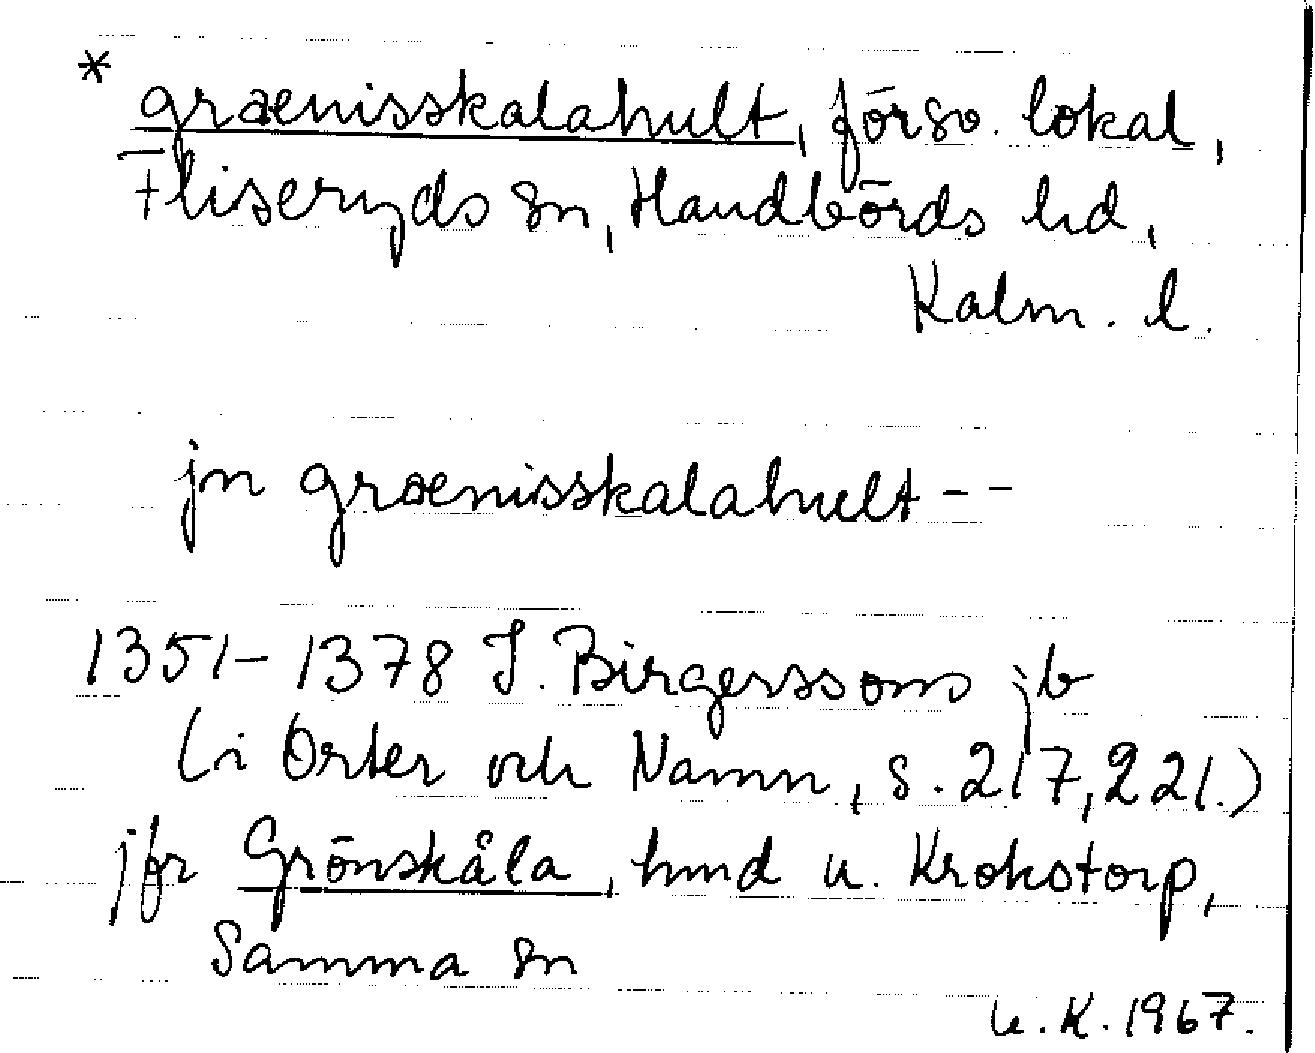 * grænisskalahult, försv. lokal,
Fliseryds sn, Handbörds hd,
Kalm. l.
jn grænisskalahult - -
1351-1378 J. Birgerssons jb
(i Orter och Namn, s. 217, 221.)
jfr Grönskåla, hmd u. Krokstorp,
Samma sn
U.K. 1967.